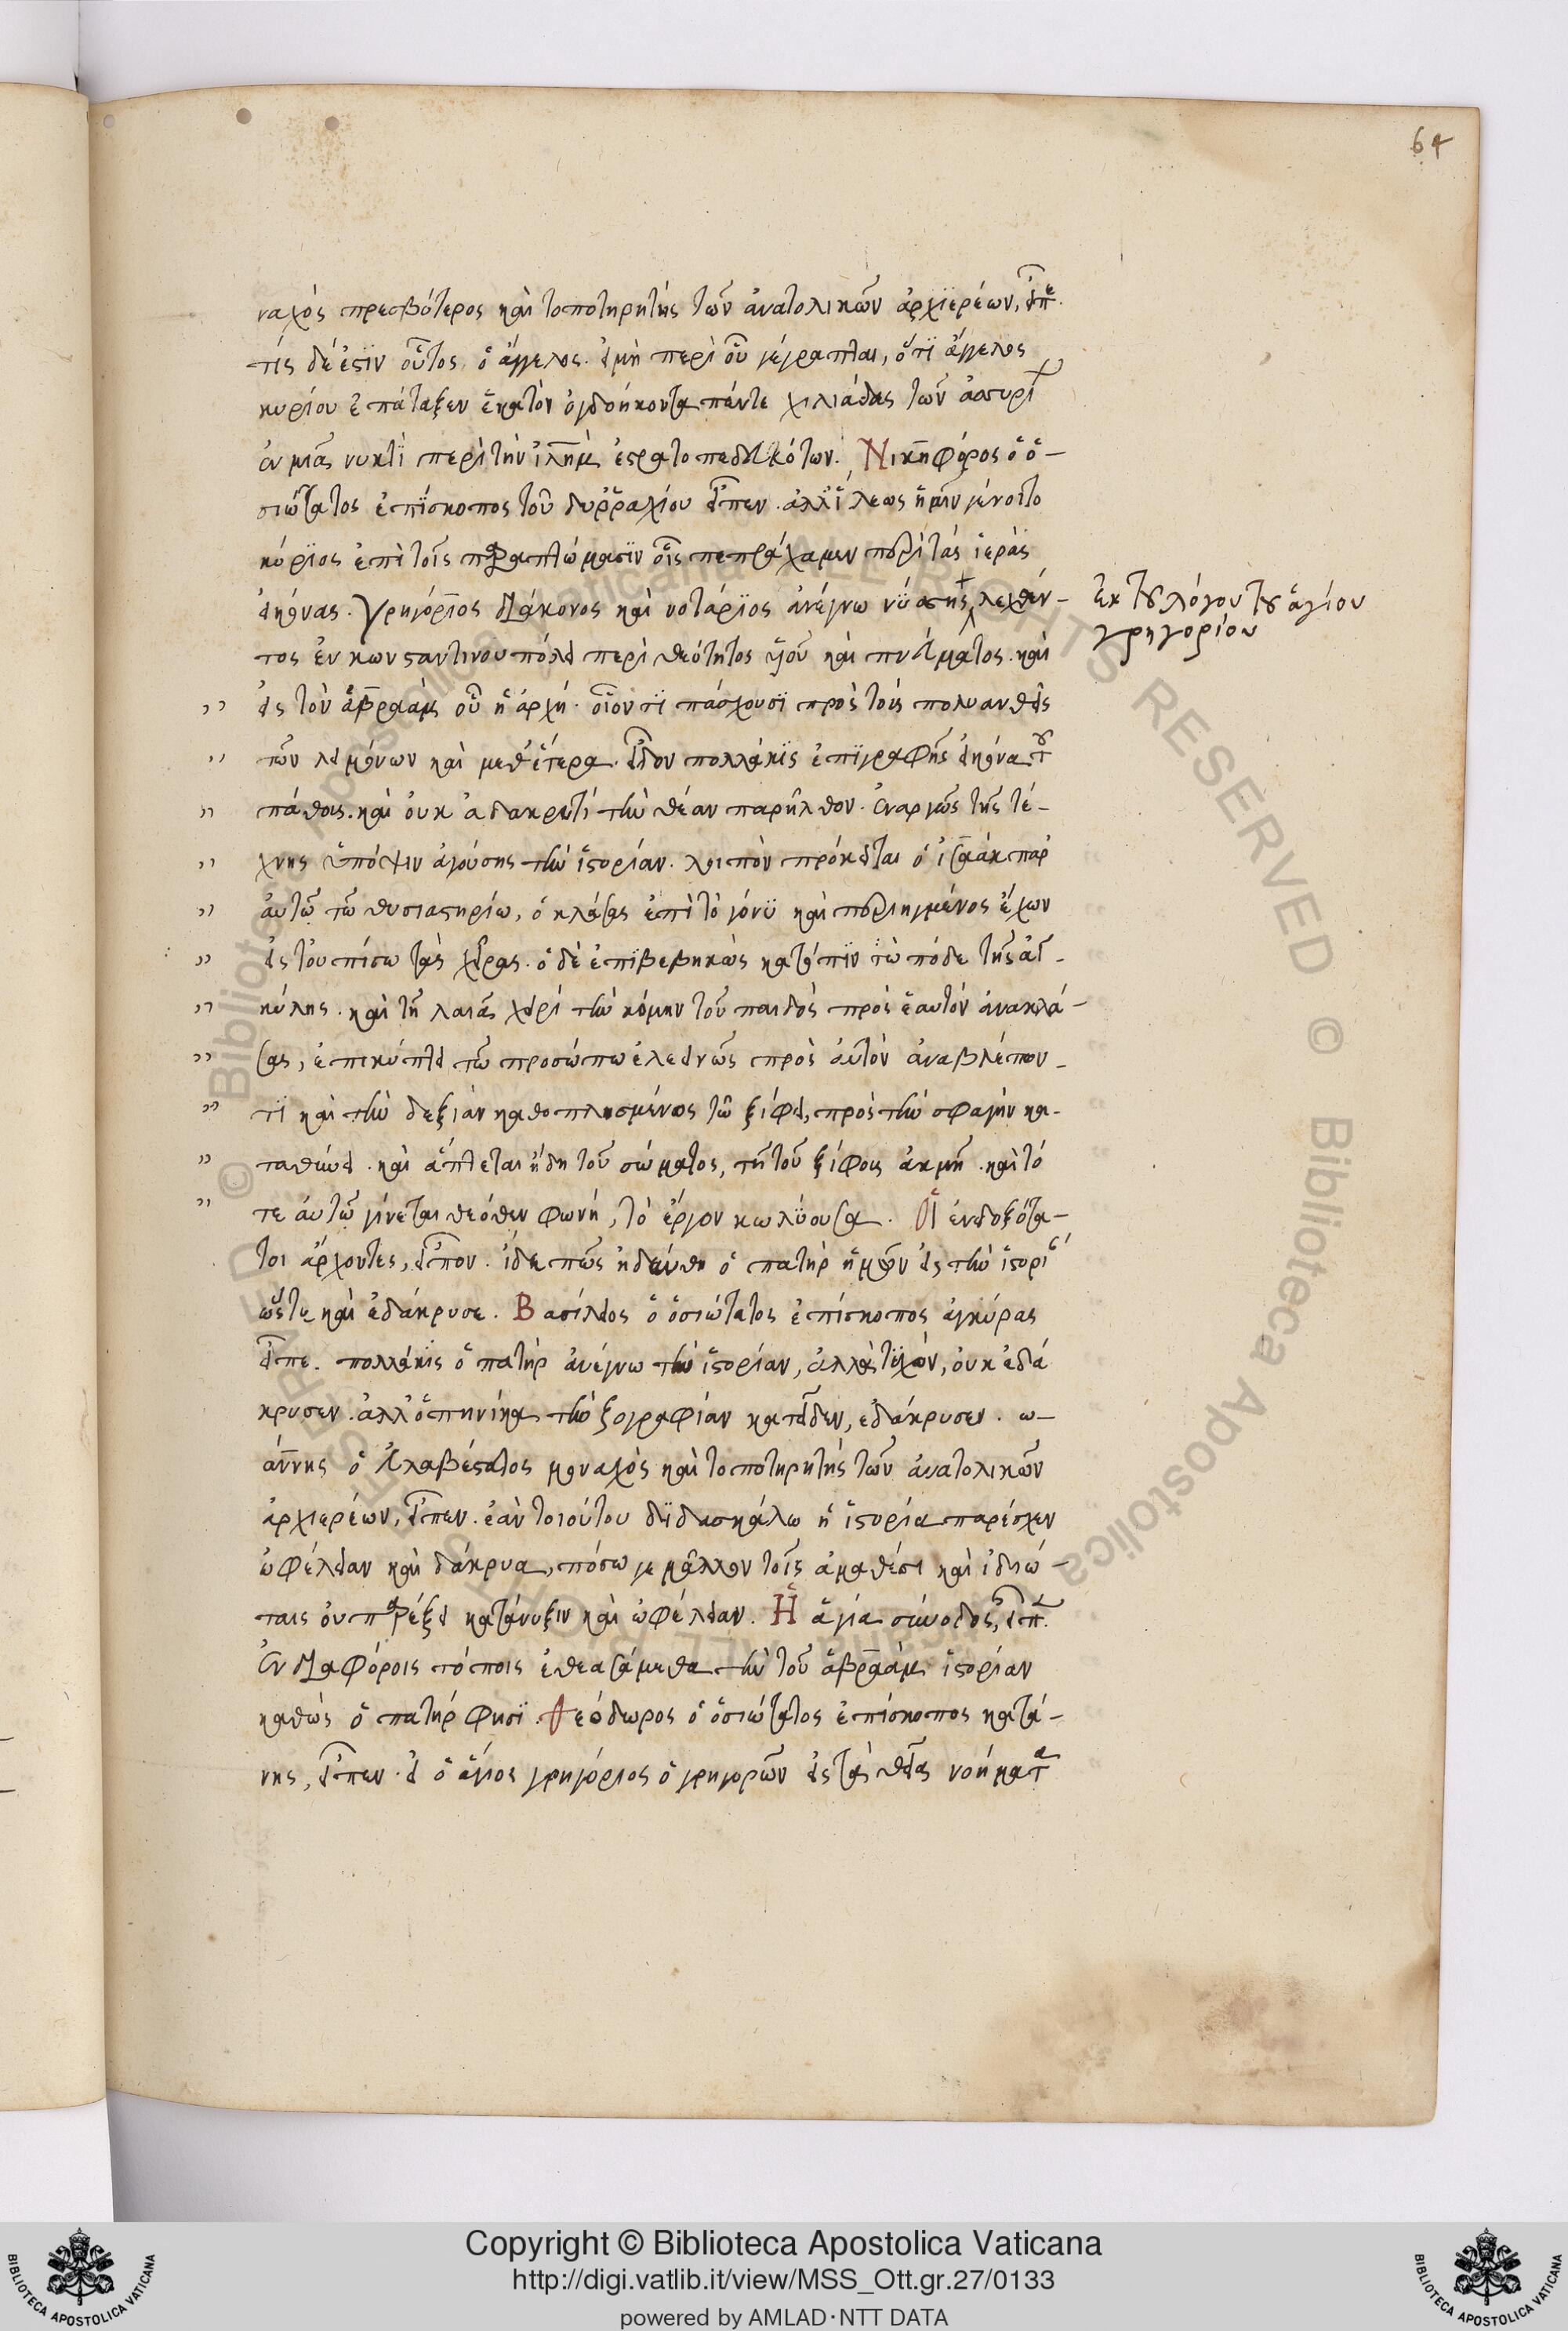 64
ναχὸς πρεσβύτερος καὶ τοποτηρητὴς τῶν ἀνατολικῶν ἀρχϊερέων, εἶπε.
τίς δέ ἐστϊν οὗτος ὁ ἄγγελος. εἰμὴ περὶ οὗ γέγραπται, ὅτϊ ἄγγελος
κυρίου ἐπάταξεν ἑκατὸν ὀγδοήκοντα πέντε χιλιάδας τῶν ἀσυρί
ἐν μιᾶ νυκτῒ περὶ τὴν ἱλὴμ ἐστρατοπεδευκότων. Νικηφόρος ὁ ὁ-
σιώτατος ἐπΐσκοπος τοῦ δυρραχίου εἶπεν. ἀλλ ἵλεως ἡμῖν γένοιτο
κύρϊος ἐπὶ τοῖς παραπτώμασϊν οἷς πεπράχαμεν περὶ τὰς ἱερὰς
εἰκόνας. Γρηγόριος διάκονος καὶ νοτάρϊος ἀνέγνω νύσσης λεχθέν-
τος ἐν κωνσταντινουπόλει περὶ θεότητος υἱοῦ καὶ πνεύματος. καὶ
εἰς τὸν ἀβραὰμ οὗ ἡ ἀρχή. οἷόν τϊ πάσχουσϊ πρὸς τοὺς πολυανθεῖς
τῶν λειμόνων καὶ μεθ ἕτερα. εἶδον πολλάκϊς ἐπϊγραφῆς εἰκόνα τοῦ
πάθους. καὶ οὐκ ἀδακρυτὶ τὴν θέαν παρῆλθον. ἐναργῶς τῆς τέ-
χνης ὑπόψιν ἀγούσης τὴν ἱστορίαν. λοιπὸν πρόκειται ὁ ἰσαὰκ παρ
αὐτῶ τῶ θυσιαστηρίω, ὀκλάσας ἐπὶ τὸ γόνϋ καὶ περιηγμένος ἔχων
εἰς τοὐπίσω τὰς χεῖρας. ὁ δὲ ἐπϊβεβηκὼς κατόπϊν τὼ πόδε τῆς ἀγ-
κύλης. καὶ τῆ λαιᾶ χειρὶ τὴν κόμην τοῦ παιδὸς πρὸς ἑαυτὸν ἀνακλά-
σας, ἐπικύπτει τῶ προσώπω ἐλεεινῶς πρὸς αὐτὸν ἀναβλέπον-
τϊ καὶ τὴν δεξιὰν καθοπλησμένος τῶ ξίφει, πρὸς τὴν σφαγὴν κα-
ταθύνει. καὶ ἅπτεται ἤδη τοῦ σώματος, τῆ τοῦ ξίφους ἀκμῆ. καὶ τό
τε αὐτῶ γίνεται θεόθεν φωνή, τὸ ἔργον κωλύουσα. Οἱ ἐνδοξότα-
τοι ἄρχοντες, εἶπον. ἴδε πῶς ἠδεύνθη ὁ πατὴρ ἡμῶν εἰς τὴν ἱστορί
ὥστε καὶ ἐδάκρυσε. Βασίλειος ὁ ὁσιώτατος ἐπίσκοπος ἀγκύρας
εἶπε. πολλάκϊς ὁ πατὴρ ἀνέγνω τὴν ἱστορίαν, ἀλλὰ τυχὸν, οὐκ ἐδά
κρυσεν. ἀλλ ὁπηνίκα τὴν ζογραφίαν κατεῖδεν, ἐδάκρυσεν. ω-
άννης ὁ εὐλαβέστατος μοναχὸς καὶ τοποτηρητὴς τῶν ἀνατολικῶν
ἀρχιερέων, εἶπεν. ἐὰν τοιούτου δϊδασκάλω ἡ ἱστορία παρέσχεν
ὠφέλειαν καὶ δάκρυα, πόσω γε μᾶλλον τοῖς ἀμαθέσι καὶ ἰδιώ-
ταις οὐ παρέξει κατάνυξιν καὶ ὠφέλειαν. Ἡ ἁγία σύνοδος, εἶπ.
Ἐν διαφόροις τόποις ἐθεασάμεθα τὴν τοῦ ἀβραὰμ ἱστορίαν
καθὼς ὁ πατὴρ φησϊ. Θεόδωρος ὁ ὁσιώτατος ἐπίσκοπος κατά-
νης, εἶπεν. εἰ ὁ ἅγιος γρηγόριος ὁ γρηγορῶν εἰς τὰ θεῖα νοήματα
ἐκ τοῦ λόγου τοῦ ἁγίου
γρηγορίου
Copyright © Biblioteca Apostolica Vaticana
http://digi.vatlib.it/view/MSS_Ott.gr.27/0133
powered by AMLAD·NTT DATA